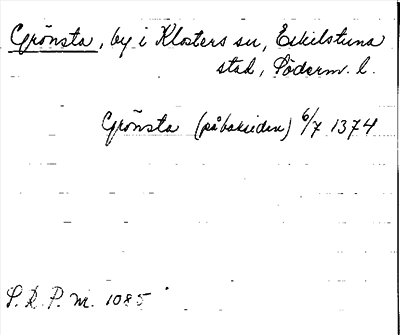 Grönsta, by i Klosters sn, Eskilstuna
stad, Söderm. l.
Grönsta (på baksidan) 6/7 1374
S. R. P. nr. 1085